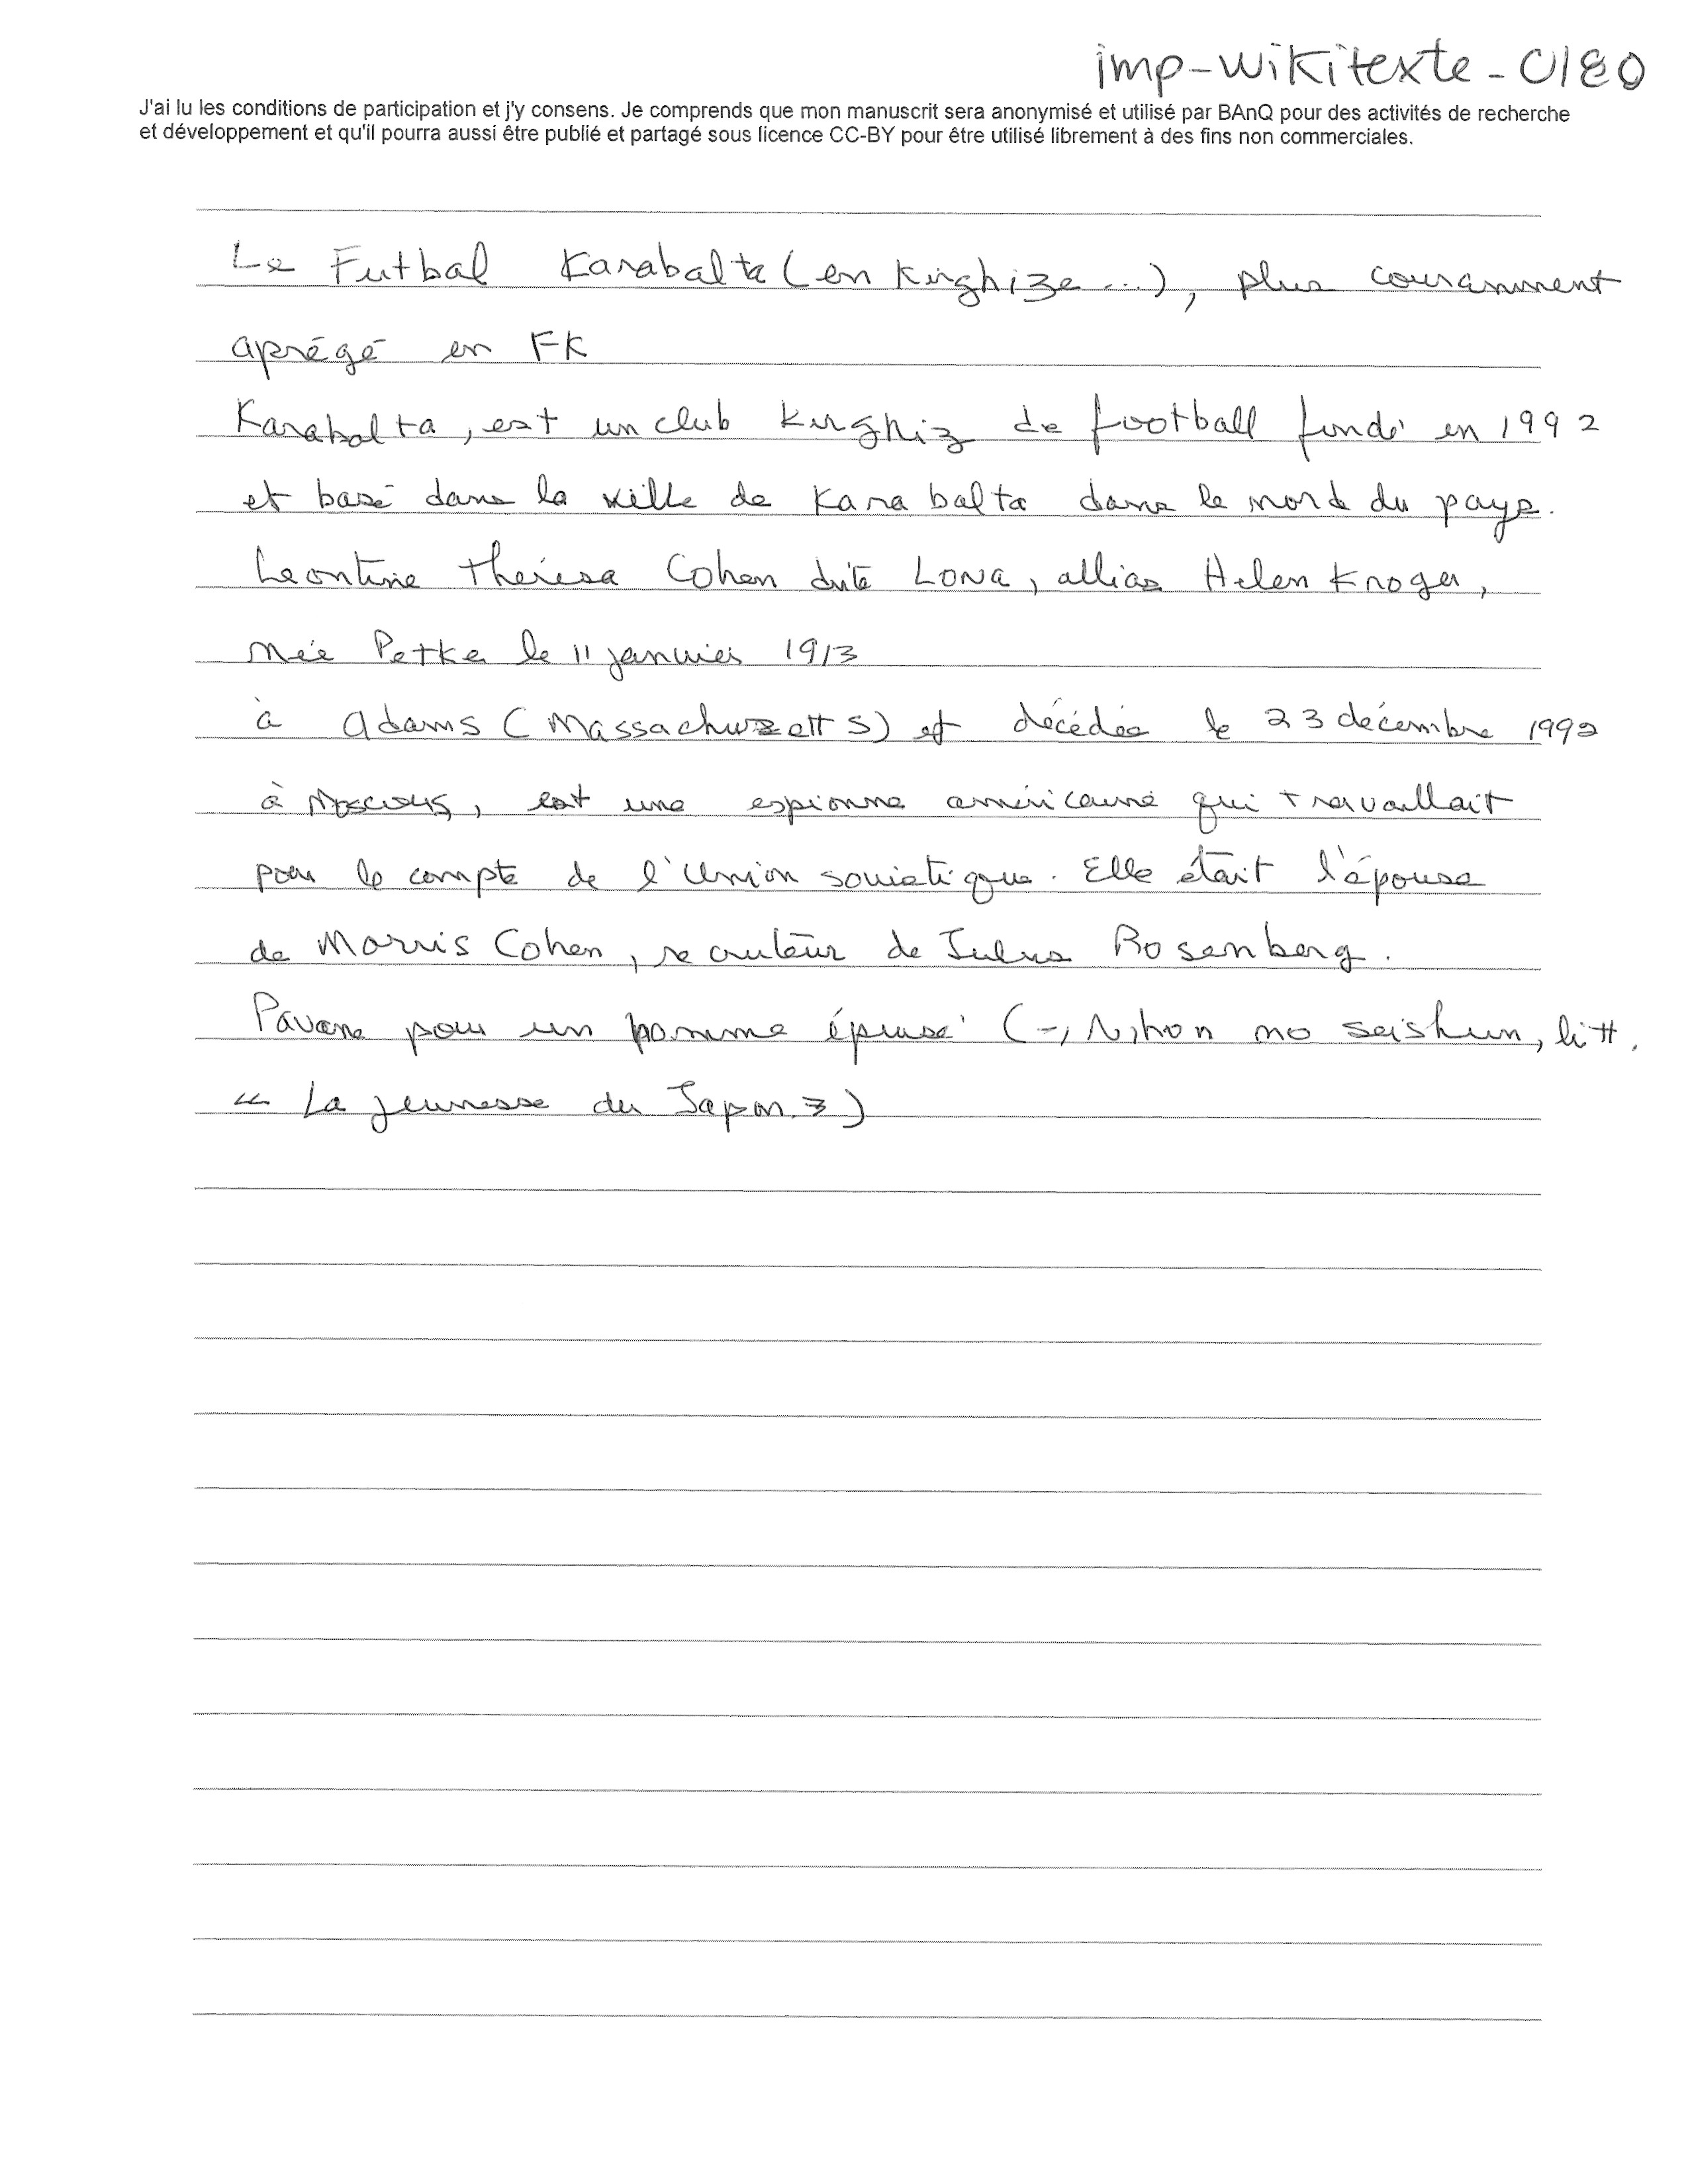 imp-wikitexte-0180
J'ai lu les conditions de participation et j'y consens. Je comprends que mon manuscrit sera anonymisé et utilisé par BAnQ pour des activités de recherche
et développement et qu'il pourra aussi être publié et partagé sous licence CC-BY pour être utilisé librement à des fins non commerciales.
Le Futbal Karabalta (en kirghize ...), plus couramment
aprégé en FK
Karabalta, est un club kirghiz de football fondé en 1992
et basé dans la ville de Karabalta dans le nord du pays.
Leontine Theresa Cohen dite LONA, allias Helen Kroger,
née Petke le 11 janvier 1913
à Adams (Massachusetts) et décédée le 23 décembre 1992
à Moscou, est une espionne américaine qui travaillait
pour le compte de l'Union soviétique. Elle était l'épouse
de Morris Cohen, recruteur de Julius Rosenberg.
Pavane pour un homme épuisé (-, Nihon no seishun, litt.
« La jeunesse du Japon »)